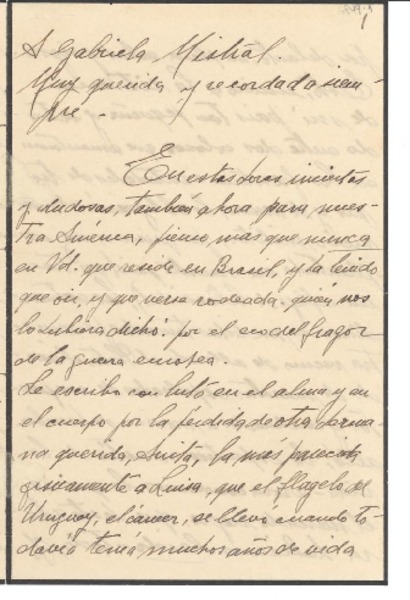 A Gabriela Mistral.
Muy querida y recordada siem-
pre.
En estas horas inciertas
y dudosas, también ahora para nues-
tra América, pienso más que nunca
en Vd. que reside en Brasil, y ha tenido
que oir, y que verse rodeada. quién nos
lo hubiera dicho. por el eco del fragor
de la guerra europea.
Le escribo con luto en el alma y en
el cuerpo por la pérdida de otra herma-
na querida, Anita, la más parecida
físicamente a Luisa, que el flagelo del
Uruguay, el cáncer, se llevó cuando to-
davía tenía muchos años de vida